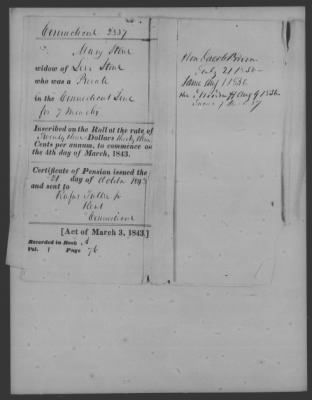 Connecticut 2337
Mary Stone
widow of Levi Stone
who was a Private
in the Connecticut Line
for 7 Months
Inscribed on the Roll at the rate of
Twenty three Dollars thirty three
Cents per annum, to commence on
the 4th day of March, 1843.
Certificate of Pension issued the
21 day of
and sent to
Rufus Fuller
Kent
Connecticut
[Act of March 3, 1843.]
Recorded in Book A
Vol. 1 Page 76
Hon Jacob
July 21 1836
Same Aug 1 1836
Aug 9 1836